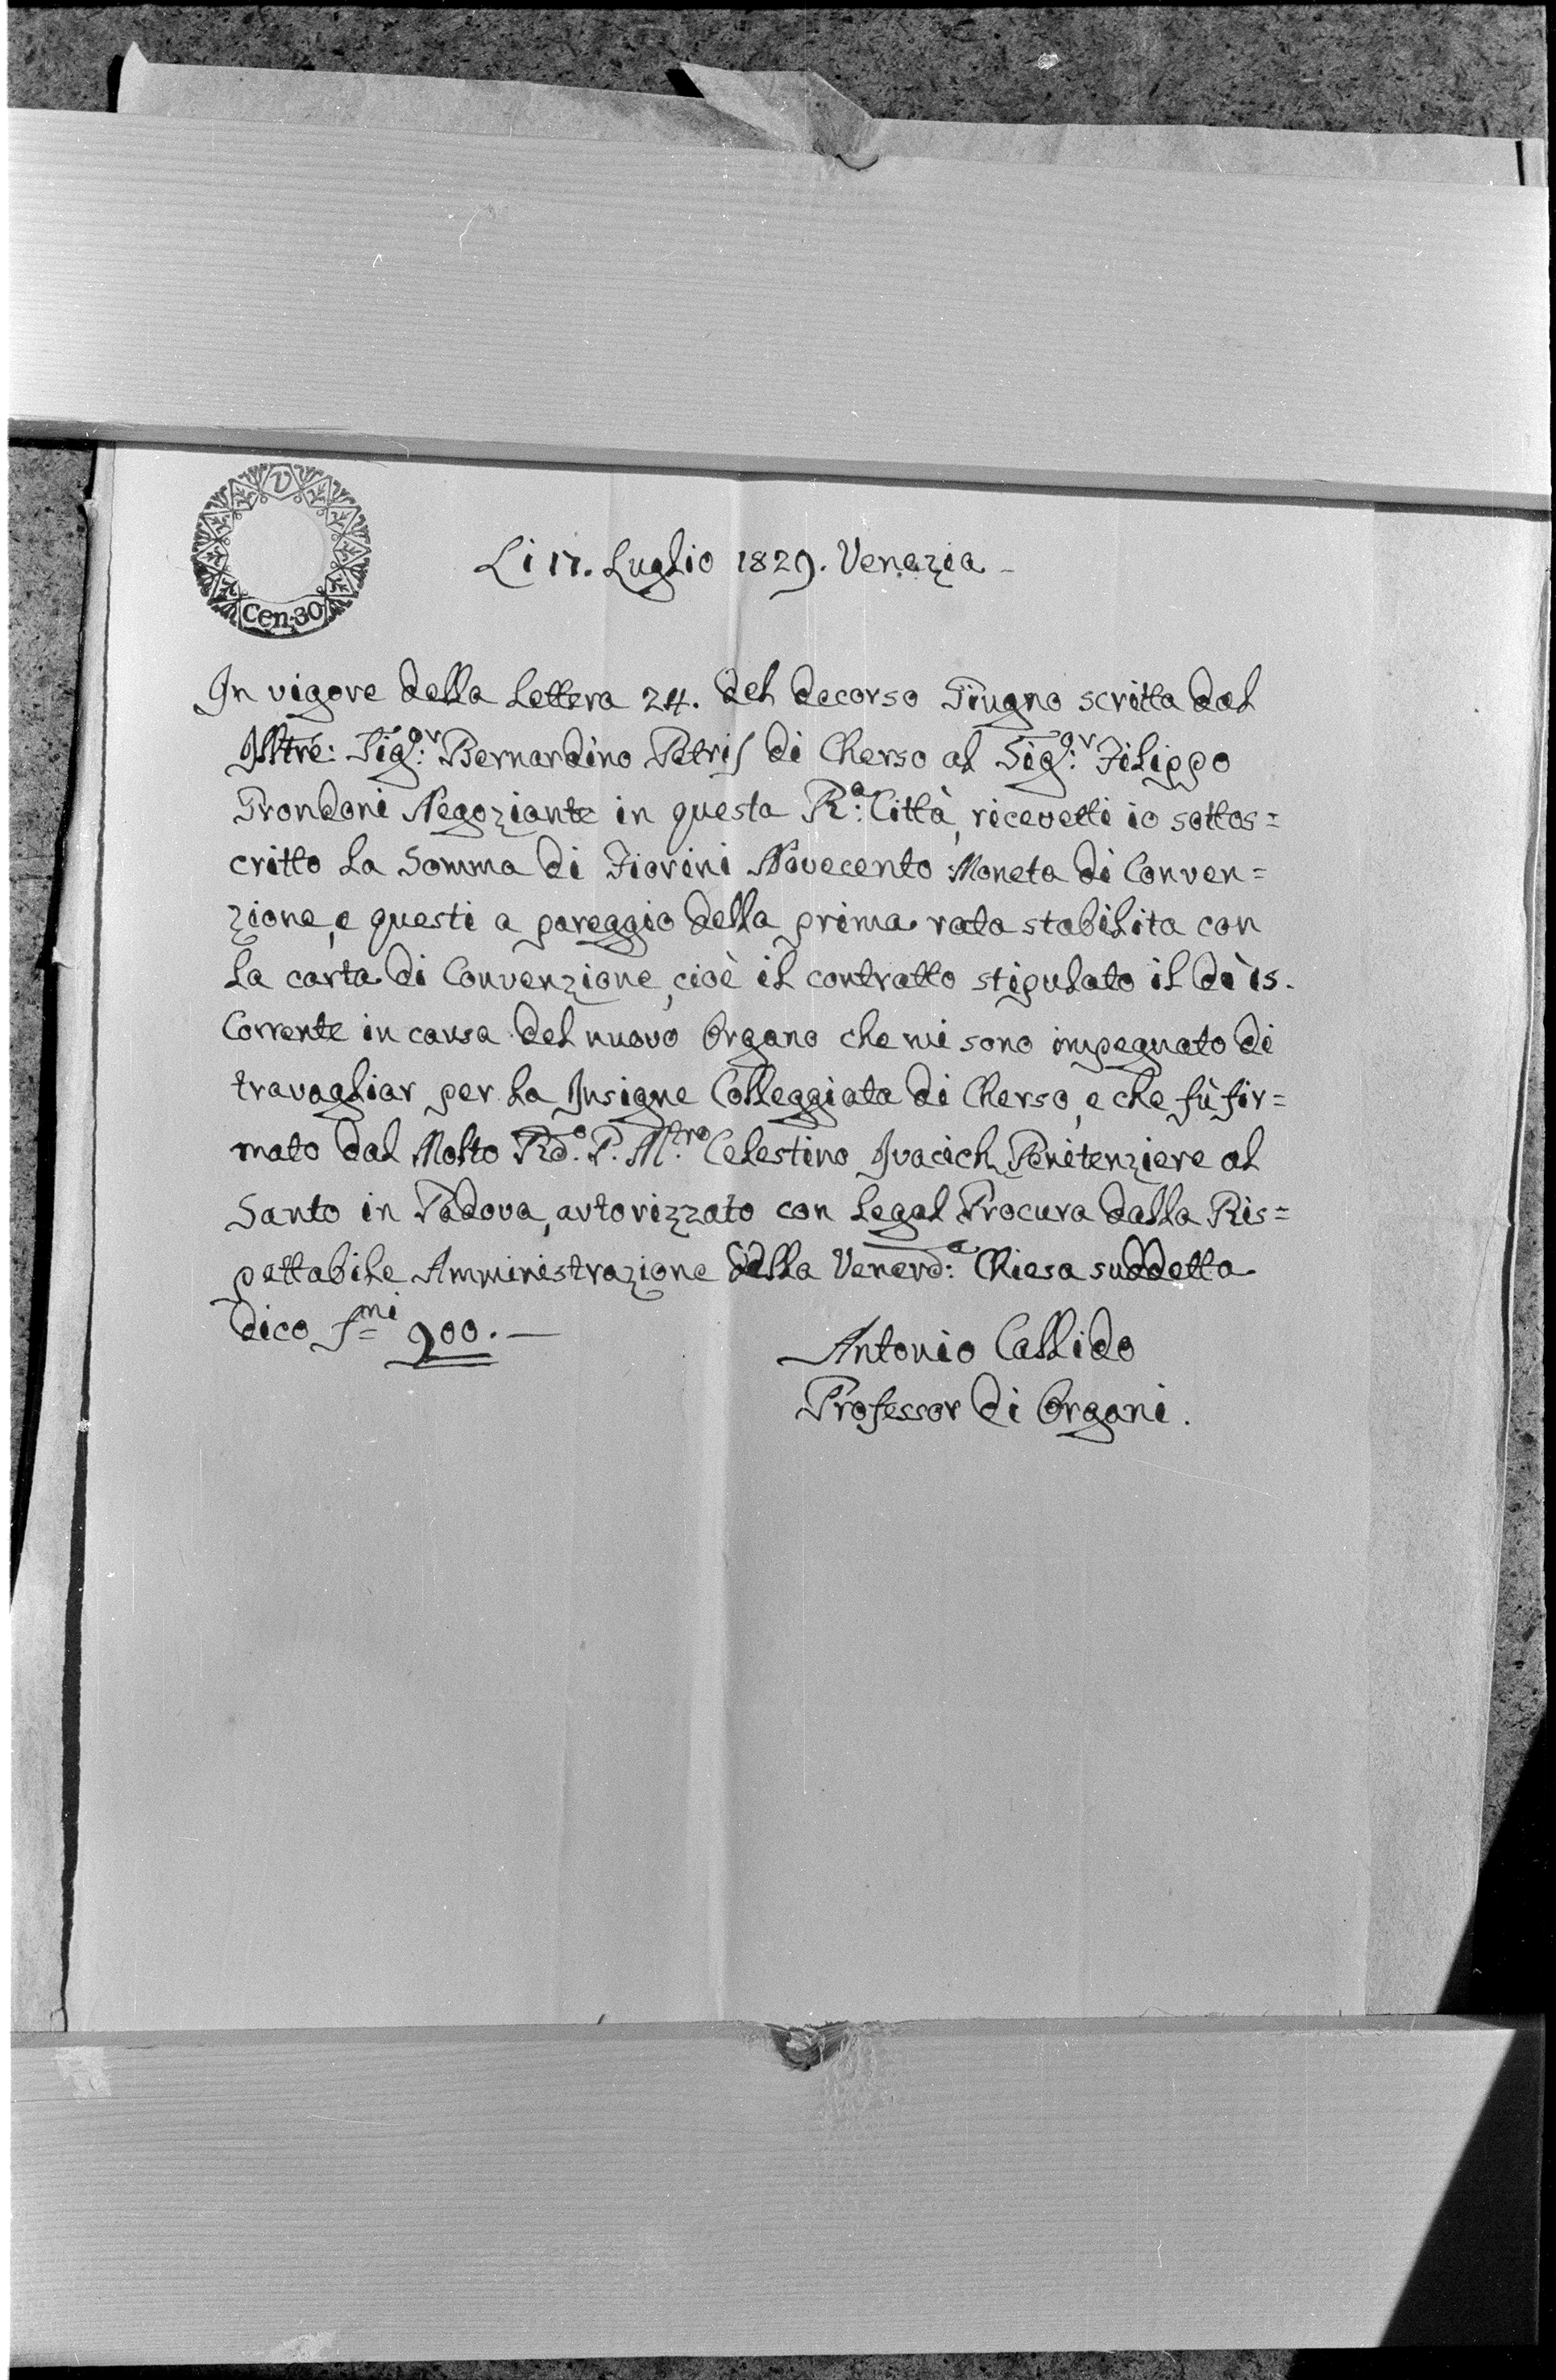 V
Cen: 30
Li 17. Luglio 1829. Venezia
In vigore della Lettera 24. del decorso Giugno scritta dal
Illtre: Sig:or Bernardino Petris di Cherso al Sig:or Filippo
Grondoni Negoziante in questa R:a Città, ricevetti io sottos=
critto la Somma di Fiorini Novecento Moneta di Conven=
zione, e questi a pareggio della prima rata stabilita con
la carta di Convenzione, cioè il contratto stipulato il dì 15.
Corrente in causa del nuovo Organo che mi sono impegnato di
travagliar per la Insigne Colleggiata di Cherso, e che fù fir=
mato dal Molto Rd.o P. M.tro Celestino Ivacich Penitenziere al
Santo in Padova, autorizzato con legal Procura dalla Ris=
pettabile Amministrazione della Venerd:a Chiesa suddetta
dico f=mi 900.—
Antonio Callido
Professor di Organi.